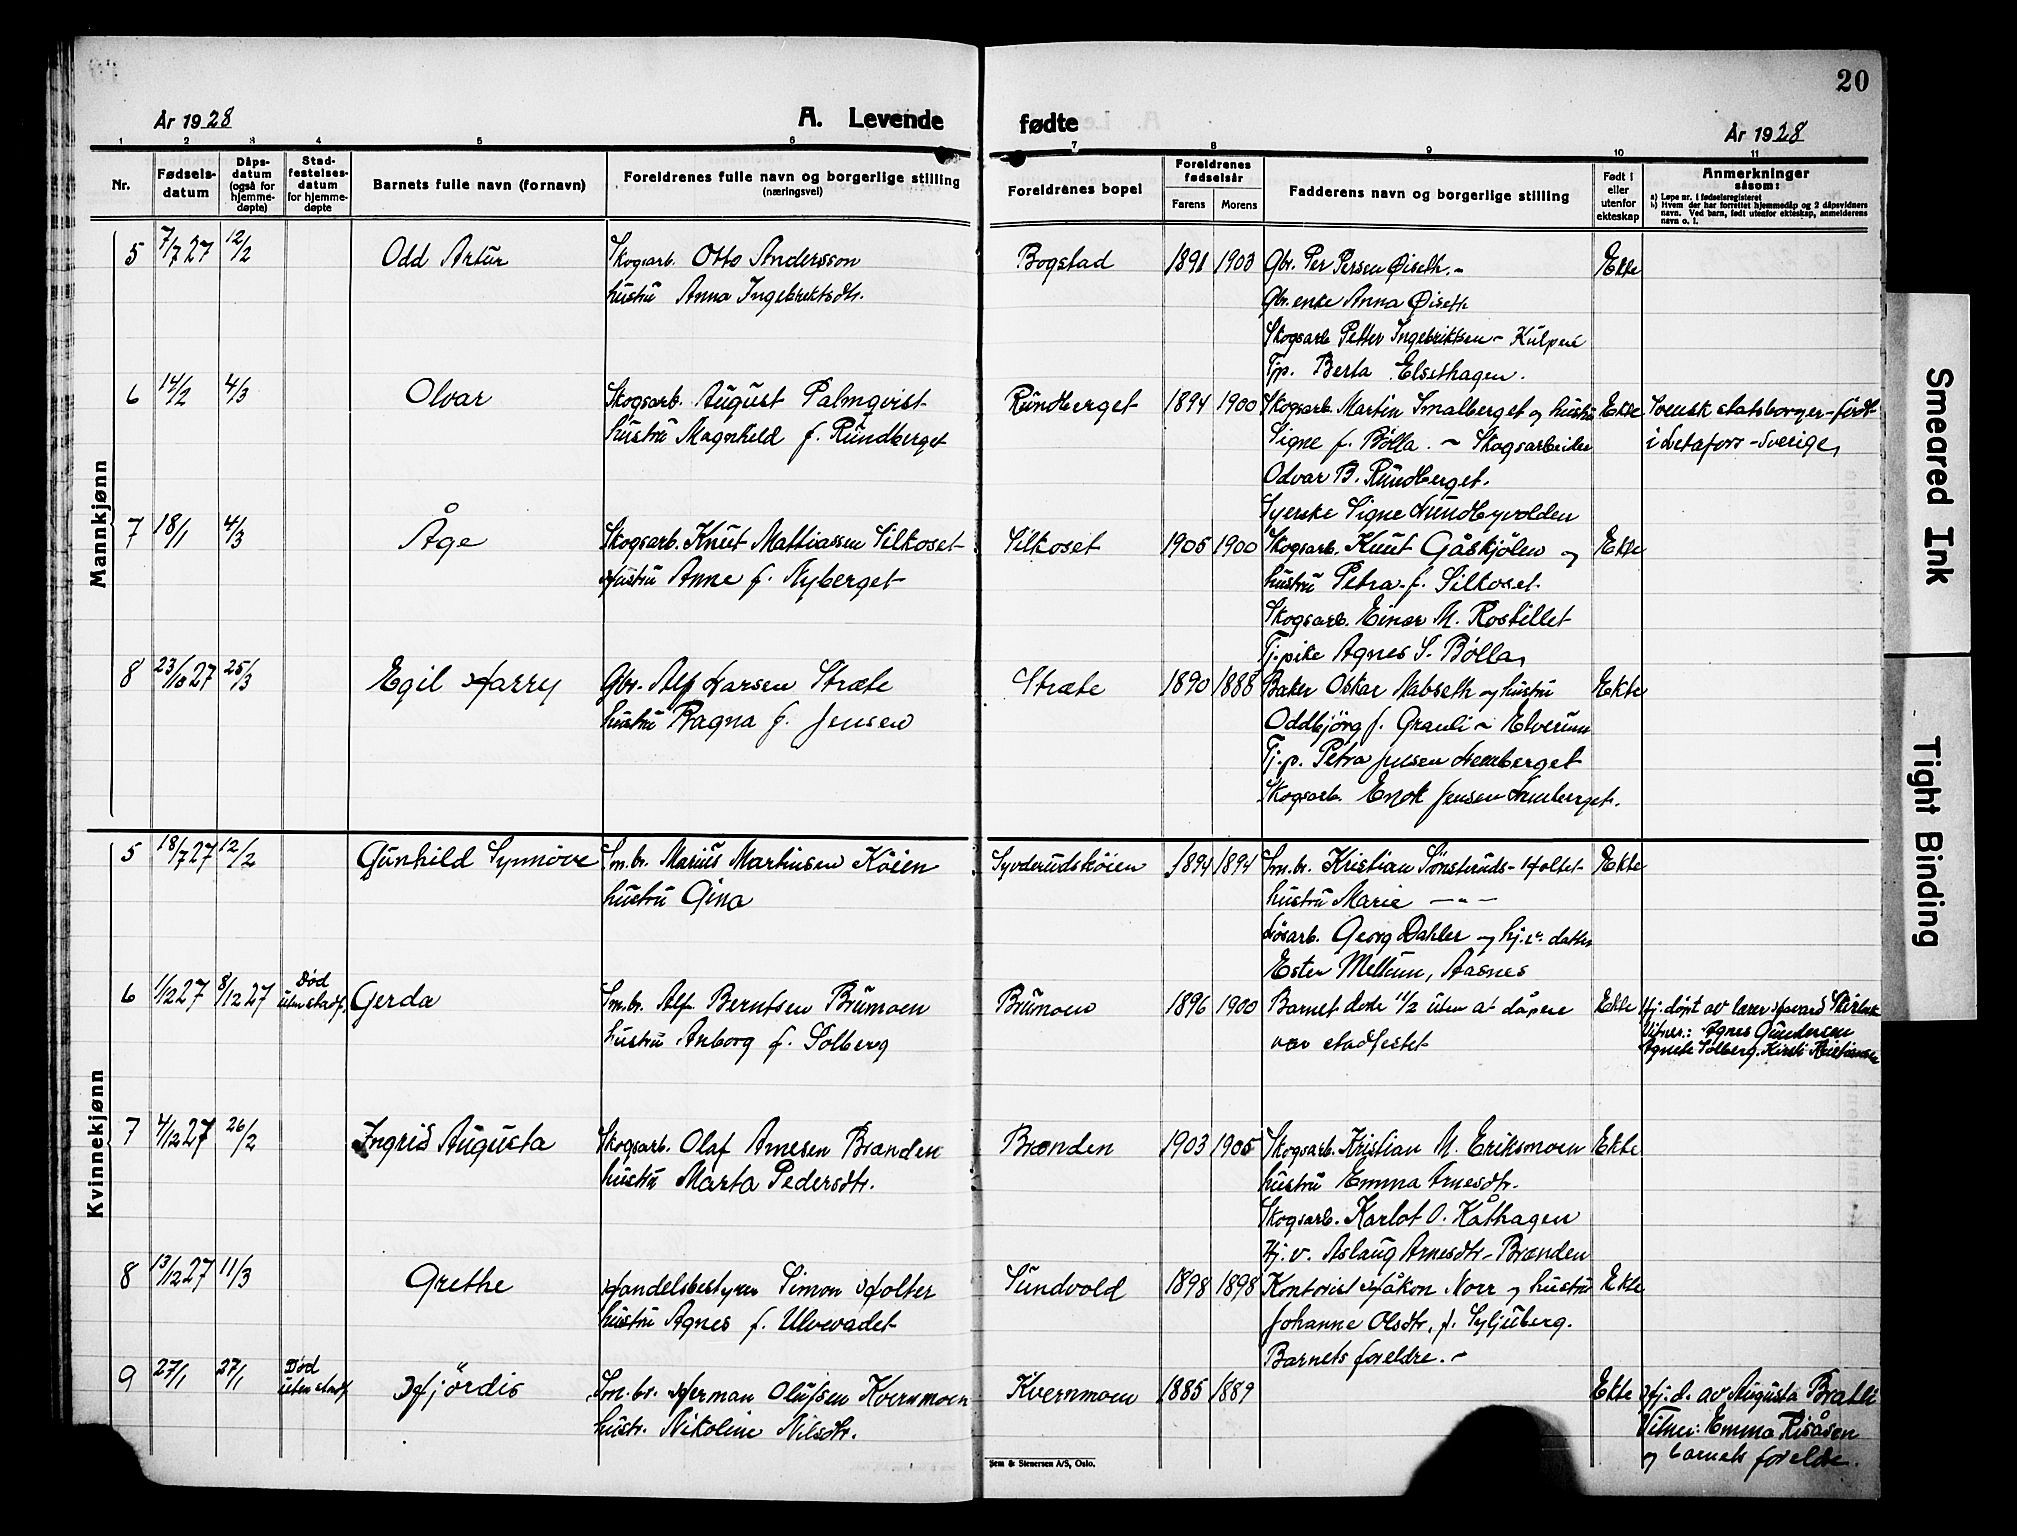 20
År 1928
A. Levende
fødte
År 1928
1 2 3 4 5 6 7 8 9 10 11
Nr.
Fødsels-
datum
Dåps-
datum
(også for
hjemme-
døpte)
Stad-
festelses-
datum
for hjemme-
døpte
Barnets fulle navn (fornavn)
Foreldrenes fulle navn og borgerlige stilling
(næringsvei)
Foreldrenes bopel
Foreldrenes
fødselsår
Farens Morens
Fadderens navn og borgerlige stilling
Født i
eller
utenfor
ekteskap
Anmerkninger
såsom:
a) Løpe nr. i fødselsregisteret
b) Hvem der har forrettet hjemmedåp og 2 dåpsvidners
navn. Ved barn, født utenfor ekteskap, anmelderens
navn o. l.
Mannkjønn
5 7/7 27 12/2 Odd Artur Skogsarb. Otto Andersson Bogstad 1891 1903 Gbr. Per Persen Øiseth. - Ekte
hustru Anna Ingebriktsdtr. Gbr. enke Anna Øiseth
Skogsarb. Petter Ingebriktsen -
Tjp. Berta Elsethagen.
6 14/2 4/3 Olvar Skogsarb. August Palmqvist Rundberget 1894 1900 Skogsarb. Martin Smalberget og hustru Ekte Svensk statsborger - født
hustru Magnhild f. Rundberget Signe f. Bølla. - Skogsarbeider i Letafors - Sverige,
Odvar B. Rundberget.
Syerske Signe Lundbyvolden
7 18/1 4/3 Åge Skogsarb. Knut Mattiassen Silkoset Silkoset 1905 1900 Skogsarb. Knut Gåskjølen og Ekte
Hustru Anne f. Nyberget hustru Petra f. Silkoset.
Skogsarb. Einar M. Rostillet
Tj.pike Agnes S. Bølla,
8 23/10 27 25/3 Egil Harry Gbr. Alf Larsen Stræte Stræte 1890 1888 Baker Oskar Nabseth og hustru Ekte
hustru Ragna f. Jensen Oddbjørg f. Granli - Elverum
Tj.p. Petra Jensen Lemberget
Skogsarb. Enok Jensen Lemberget.
Kvinnekjønn
5 18/7 27 12/2 Gunhild Synnöve Sm.br. Marius Martinsen Köien Syvderudsköien 1894 1894 Sm.br. Kristian Sönsteruds- Holtet Ekte
hustru Gina hustru Marie - " -
Løsarb. Georg Dahler og hj.v. datter
Ester Mellum, Aasnes
6 1/12 27 8/12 27 Død uten stadf. Gerda Sm.br. Alf Berntsen Brumoen Brumoen 1896 1900 Barnet døde 11/2 uten at dåpen Ekte Hj. døpt av lærer Havard
hustru Anborg f. Solberg var stadfestet Vitner: Agnes Gundersen
Agnete Solberg. Kirsti Kristiansen
7 4/12 27 26/2 Ingrid Augusta Skogsarb. Olaf Arnesen Brænden Brænden 1903 1905 Skogsarb. Kristian M. Eriksmoen Ekte
hustru Marta Pedersdtr. hustru Emma Arnesdtr.
Skogsarb. Karlot O. Kåthagen
Hj. v. Aslaug Arnesdtr - Brænden
8 13/12 27 11/3 Grethe Handelsbestyrer Simon Holter Sundvold 1898 1898 Kontorist Håkon Norr og hustru Ekte
hustru Agnes f. Ulvevadet Johanne Olsdtr. f. Syljuberg.
Barnets foreldre. -
9 27/1 27/1 Død uten stadf. Hjördis Sm.br. Herman Olufsen Kvernmoen Kvernmoen 1885 1889 Ekte Hj. d. av Augusta Bratli
hustr. Nikoline Nilsdtr. Vitner: Emma Risåsen
og barnets foreldre.
Sem & Stenersen A/S, Oslo.
Smeared Ink
Tight Binding